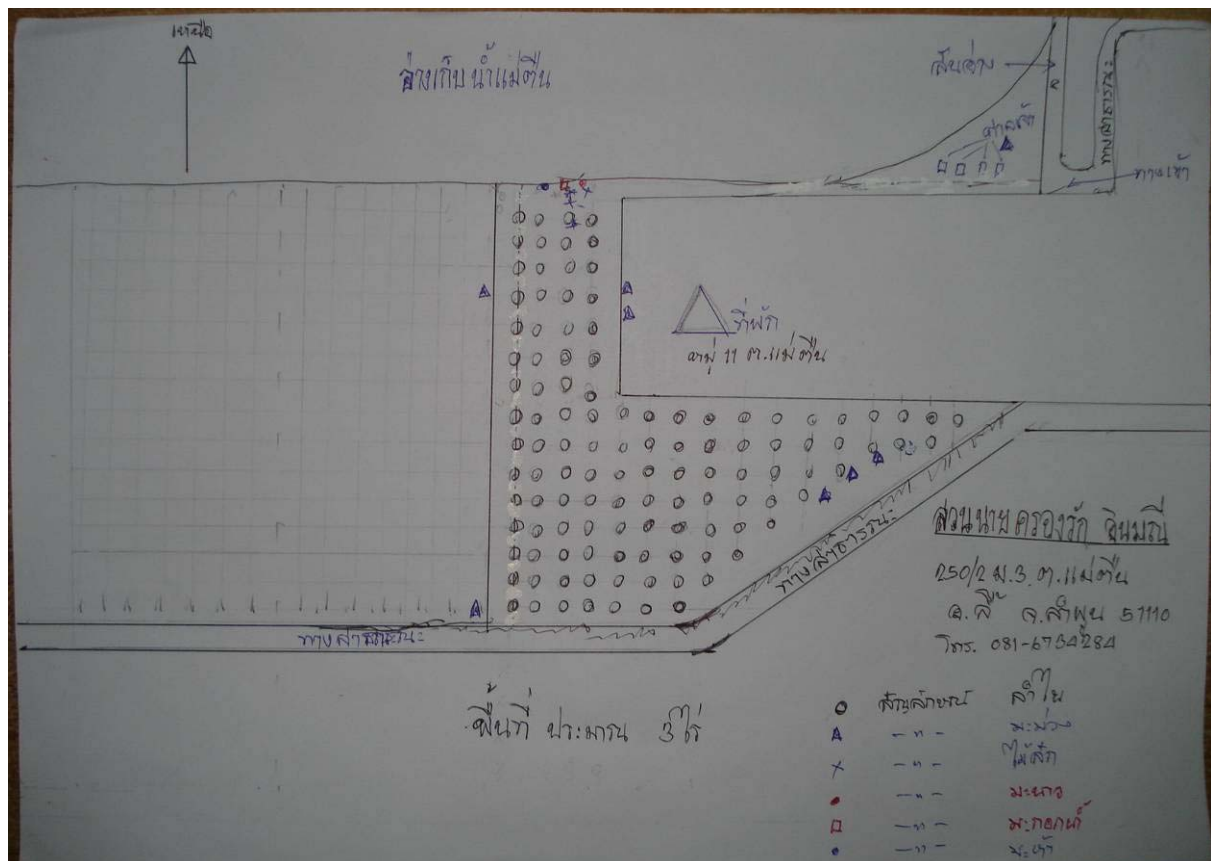 เหนือ
อ่างเก็บน้ำแม่ตืน
สันอ่าง
ศาลเจ้า
ทางสาธารณะ
ทางเข้า
ที่พัก
หมู่ 11 ต.แม่ตืน
ทางสาธารณะ
ทางสาธารณะ
สวนนายครองรัก อินมณี
250/2 ม.3 ต.แม่ตืน
อ.ลี้ จ.ลำพูน 51110
โทร. 081-6734284
พื้นที่ ประมาณ 3 ไร่
สัญลักษณ์ ลำไย
-"- มะม่วง
-"- ไม้สัก
-"- มะนาว
-"- มะกอกน้ำ
-"-